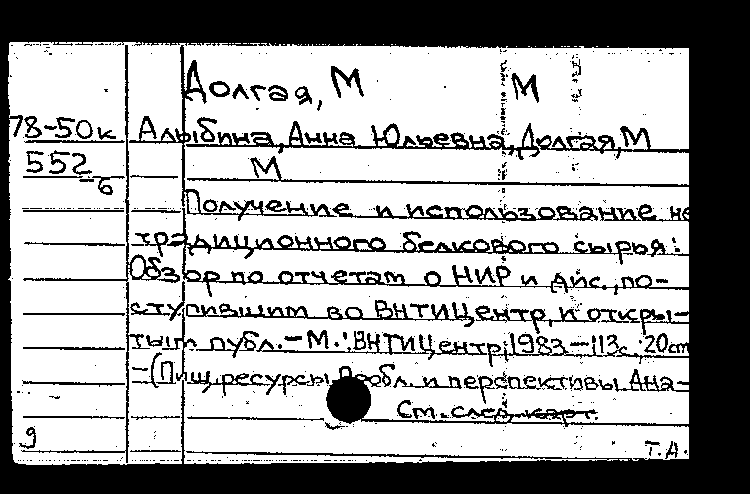 Долгая, М М
78-50к Алыбина, Анна Юльевна, Долгая, М
552 М
-6
Получение и использование не
традиционного белкового сырья:
Обзор по отчетам о НИР и дис., по-
ступившим во ВНТИЦентр, и откры-
тым публ.-М.: ВНТИЦентр, 1983-113с.; 20см
-(Пищ. ресурсы. Пробл. и перспективы. Ана-
См. след. карт.
9 Т.А.